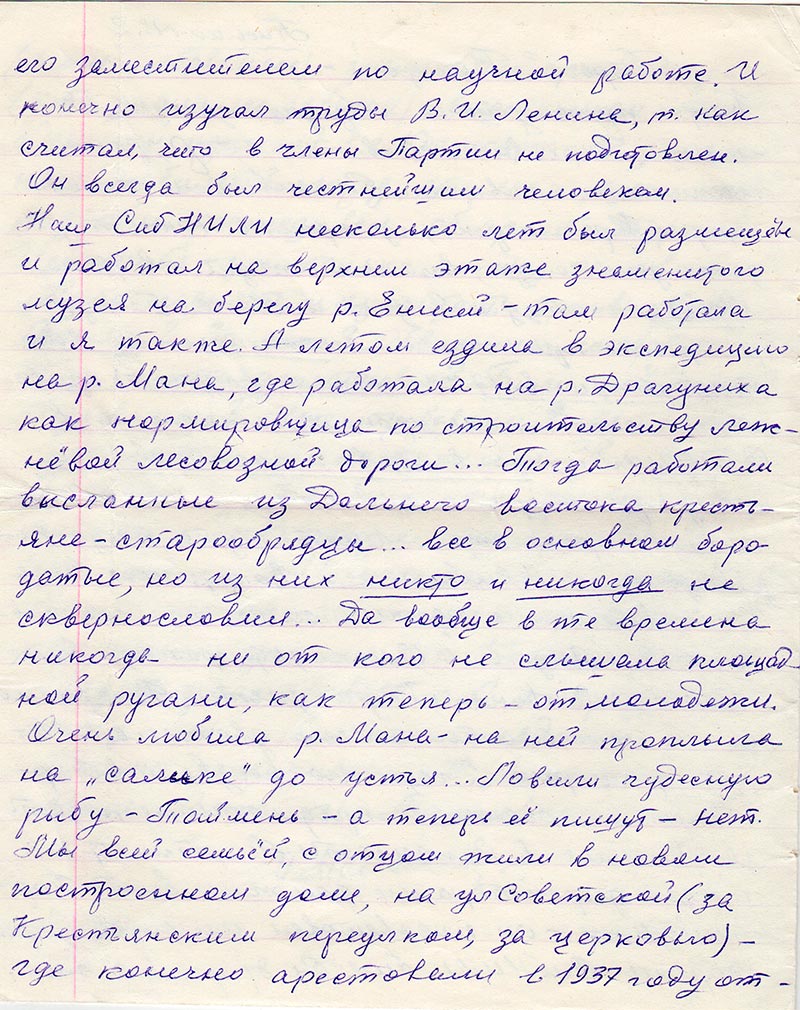 его заместителем по научной работе. И
конечно изучал труды В.И. Ленина, т. как
считал, что в члены Партии не подготовлен.
Он всегда был честнейшим человеком.
Наш СибНИЛИ несколько лет был размещён
и работал на верхнем этаже знаменитого
музея на берегу р. Енисей – там работала
и я также. А летом ездила в экспедицию
на р. Мана, где работала на р. Драгуниха
как нормировщица по строительству леж-
нёвой лесовозной дороги... Тогда работали
высланные из Дальнего востока кресть-
яне – старообрядцы... все в основном боро-
датые, но из них никто и никогда не
сквернословил... Да вообще в те времена
никогда ни от кого не слышала площад-
ной ругани, как теперь – от молодежи.
Очень любила р. Мана – на ней проплыла
на „салике" до устья... Ловили чудесную
рыбу – Таймень – а теперь её пишут – нет.
Мы всей семьёй, с отцом жили в новом
построеном доме, на ул Советской (за
Крестьянским переулком, за церковью) –
где конечно арестовали в 1937 году от-